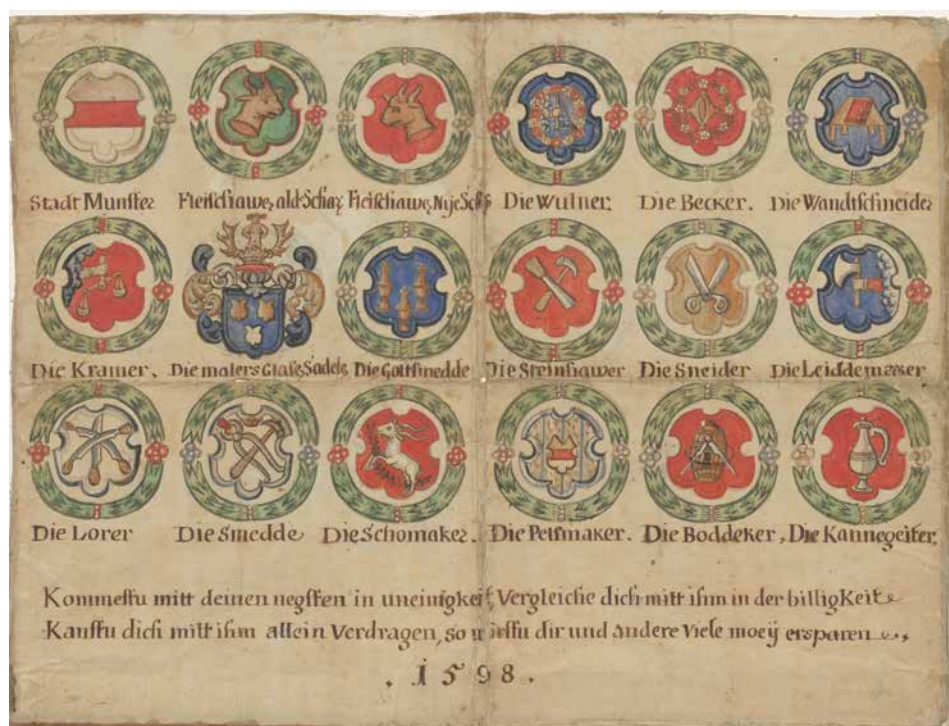 Stadt Munster Fleischawer ald Schar Fleischawer Nye Schar Die Wulner. Die Becker. Die Wandtschneider
Die Kramer. Die malers Glase, Sadele Die Goltsmedde Die Steinhawer Die Sneider Die Leiddemaker
Die Lorer Die Smedde Die Schomaker. Die Pelsmaker. Die Boddeker, Die Kannegeiter.
Kommestu mitt deinen negsten in uneinigkeit, Vergleiche dich mitt ihm in der billigKeit
Kanstu dich mitt ihm allein Verdragen, so wirstu dir und andere Viele moeÿ ersparen
. 1 5 9 8 .